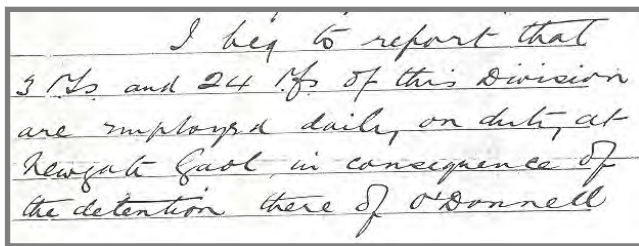 I beg to report that
3 PSs and 24 PCs of this Division
are employed daily, on duty, at
Newgate Gaol in consequence of
the detention there of O'Donnell